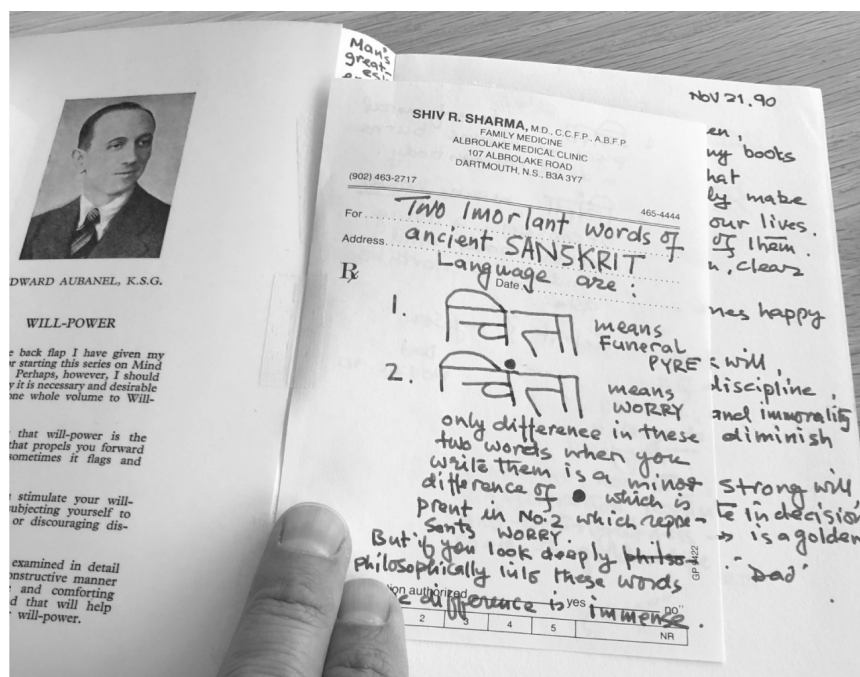 DWARD AUBANEL, K.S.G.
WILL-POWER
e back flap I have given my
r starting this series on Mind
Perhaps, however, I should
y it is necessary and desirable
one whole volume to Will-
that will-power is the
that propels you forward
sometimes it flags and
stimulate your will-
ubjecting yourself to
or discouraging dis-
examined in detail
onstructive manner
and comforting
d that will help
will-power.
Man's
great-
SHIV R. SHARMA, M.D., C.C.F.P., A.B.F.P.
FAMILY MEDICINE
ALBROLAKE MEDICAL CLINIC
107 ALBROLAKE ROAD
DARTMOUTH, N.S., B3A 3Y7
(902) 463-2717
465-4444
For Two Imortant words of
Address ancient SANSKRIT
Rx Language are:
Date
1. चिता means
Funeral
PYRE
2. चिंता means
WORRY
only difference in these
two words when you
write them is a minor
difference of ● which is
prent in No. 2 which repre-
sants WORRY.
But if you look deeply philso-
philosophically into these words
e difference is immense.
ion authorized yes no"
2 3 4 5 NR
GP 9422
Nov 21.90
en,
my books
hat
ly make
our lives.
of them.
n, clear
nes happy
will,
discipline,
and immorality
diminish
Strong will
e in decision
is a golden
"Dad"